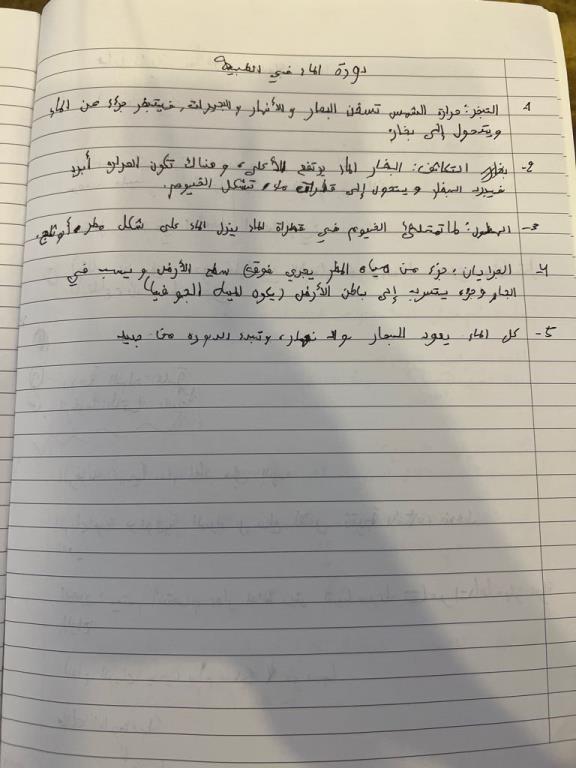 دورة الماء في الطبيعة
1 التبخر: حرارة الشمس تسخن البحار والأنهار والبحيرات، فيتبخر جزء من الماء
ويتحول إلى بخار.
2- التكاثف: البخار الماء يرتفع للأعلى، وهناك تكون الحرارة أبرد
فيبرد البخار ويتحول إلى قطرات ماء تشكل الغيوم.
3- الهطول: لما تمتلئ الغيوم في قطراة الماء ينزل الماء على شكل مطر أو ثلج.
4- الجرايان: جزء من مياه المطر يجري فوق سطح الأرض ويصب في
البحار وجزء يتسرب إلى باطن الأرض (يكوه المياه الجوفيا)
5- كل الماء يعود للبحار والانهار، وتبدء الدوره من جديد